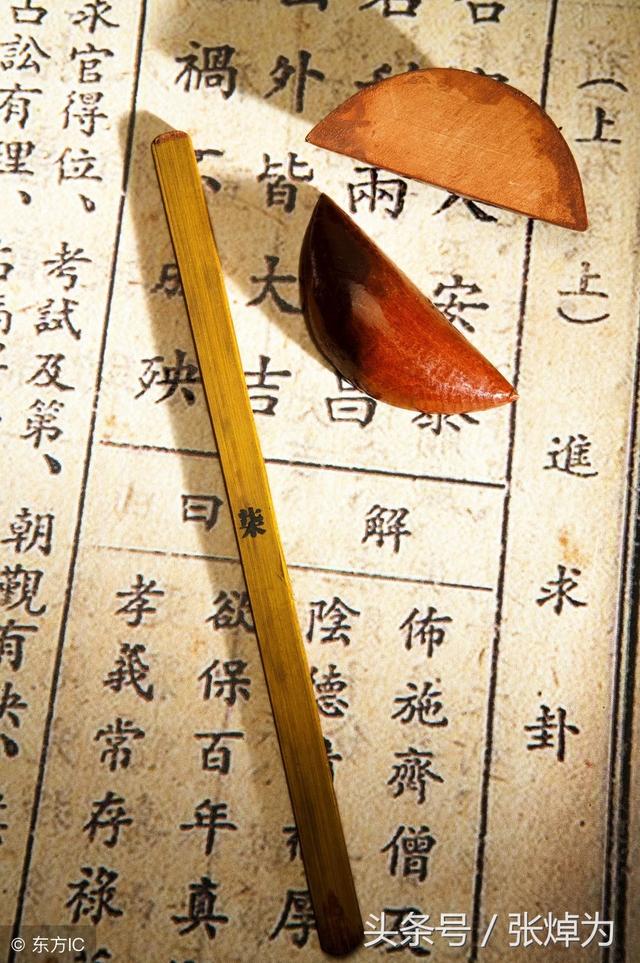 （上上）進求卦
人安泰
兩昌
外皆大吉
禍不成殃
解曰
佈施齊僧
陰德厚
欲保百年真
孝義常存祿
求官得位、考試及第、朝觀有
訟有理、
柒
頭条号 / 张焯为
© 东方IC